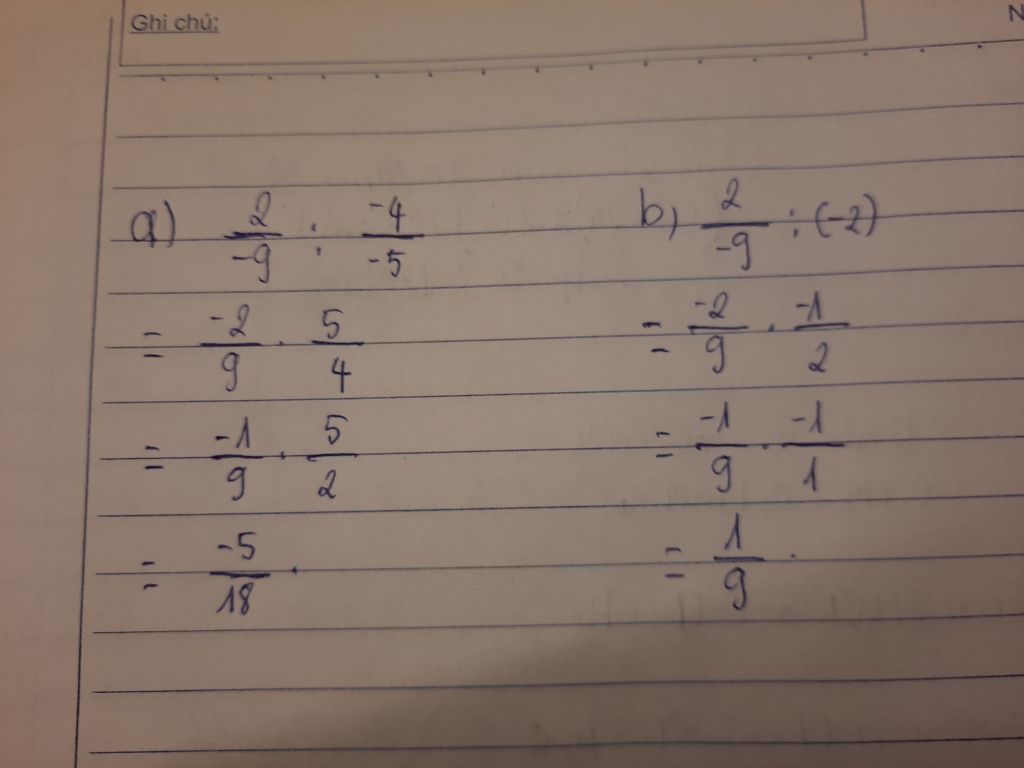 Ghi chú:
N
a) 2/-9 : -4/-5
= -2/9 . 5/4
= -1/9 . 5/2
= -5/18 .
b, 2/-9 : (-2)
= -2/9 . -1/2
= -1/9 . -1/1
= 1/9 .